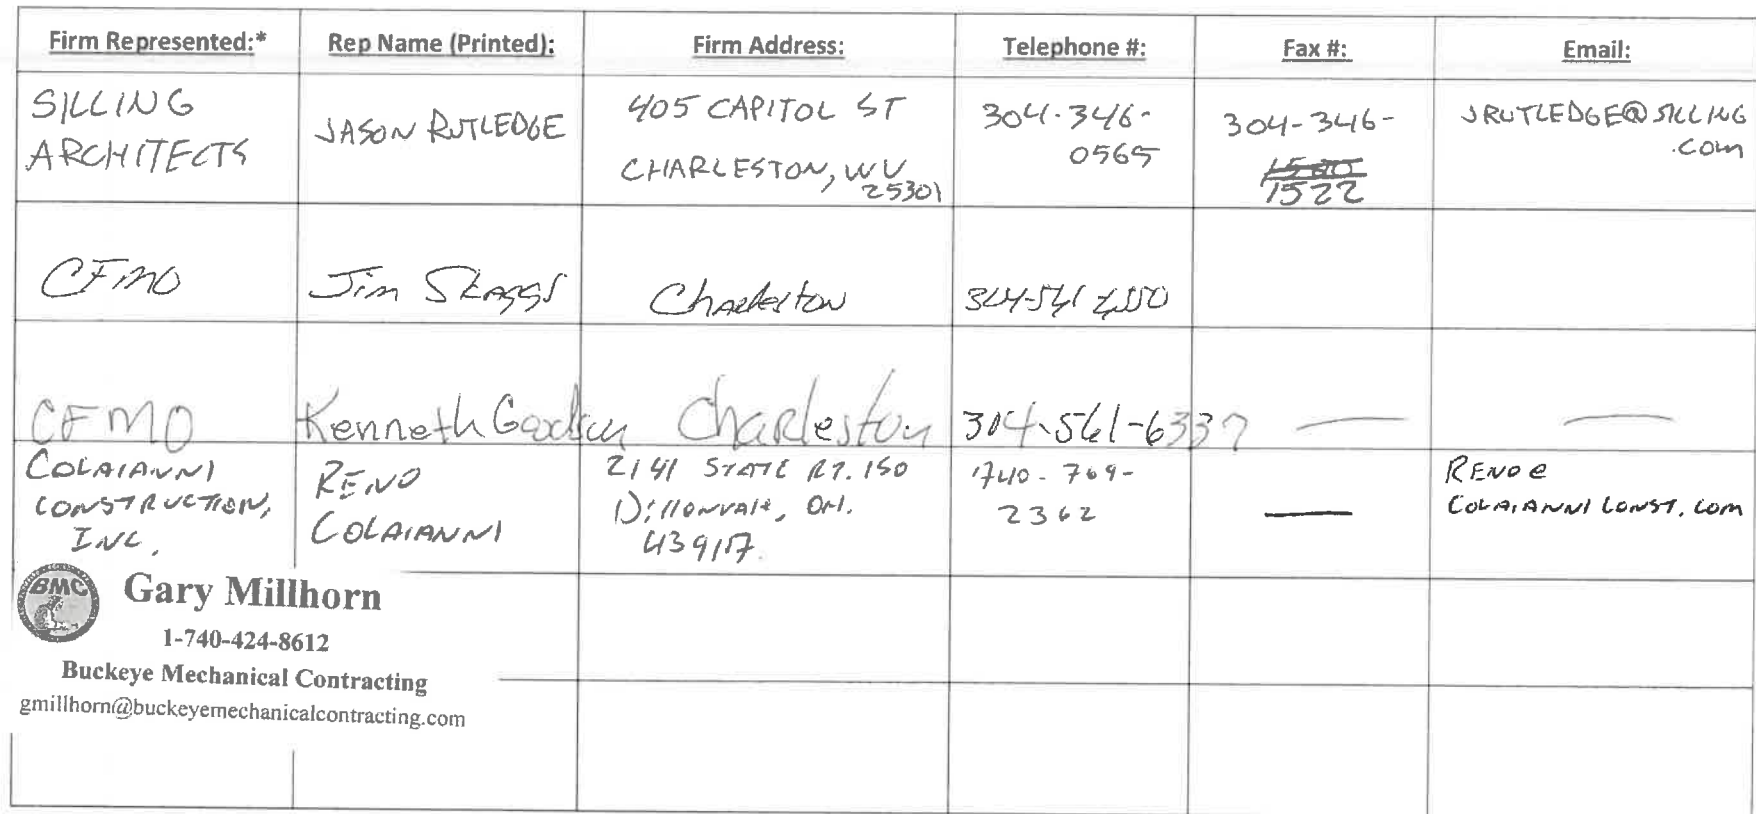 Firm Represented:* Rep Name (Printed): Firm Address: Telephone #: Fax #: Email:
SILLING
ARCHITECTS
JASON RUTLEDGE
405 CAPITOL ST
CHARLESTON, WV
25301
304-346-
0565
304-346-
1522
JRUTLEDGE@SILLING
.COM
CFMO
Jim Skaggs
Charleston
304-561
CFMO
Kenneth
Charleston
304-561-6337
—
—
COLAIANNI
CONSTRUCTION,
INC.
RENO
COLAIANNI
2141 STATE RT. 150
Dillonvale, OH.
43917
740-769-
2362
—
RENO@
COLAIANNICONST.COM
BMC
Gary Millhorn
1-740-424-8612
Buckeye Mechanical Contracting
gmillhorn@buckeyemechanicalcontracting.com